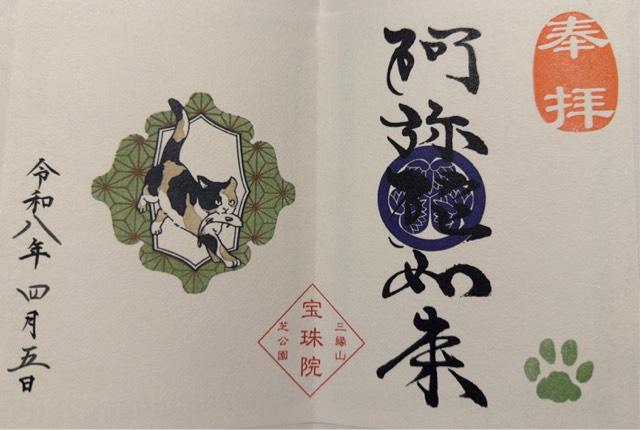 奉拝
阿弥陀如来
三縁山
宝珠院
芝公園
令和八年 四月五日